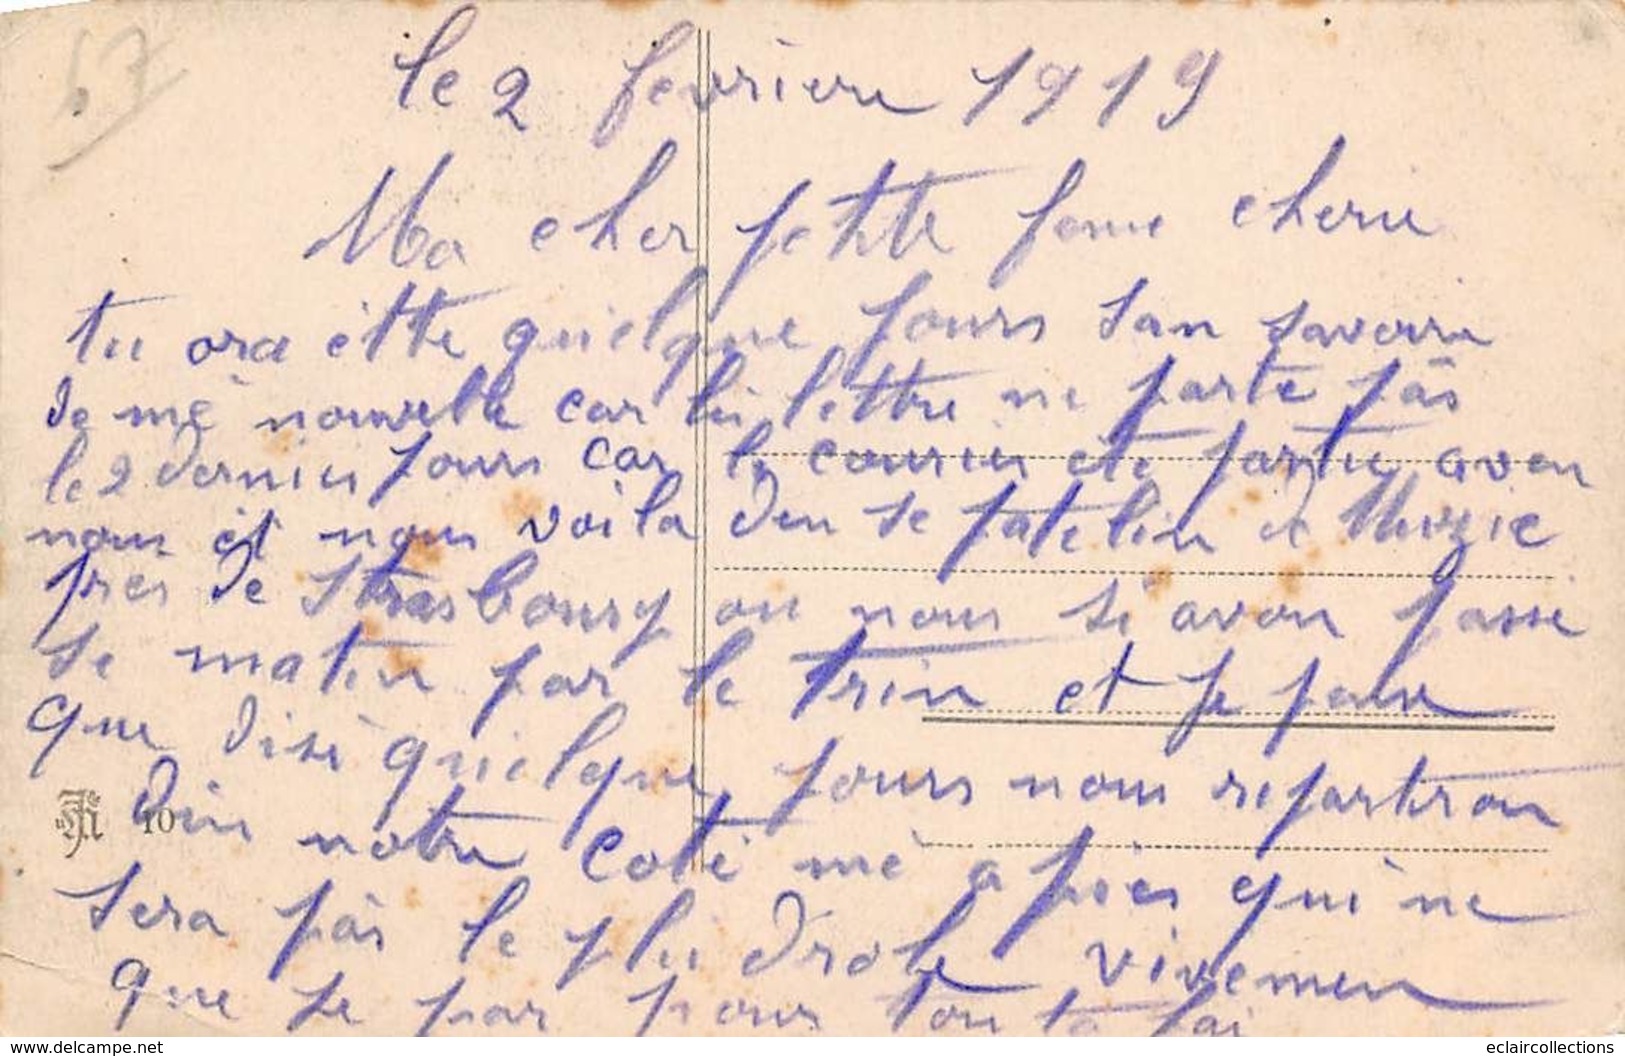 67
le 2 fevriere 1919
Ma cher petite feme cherie
tu ora étte quielque jours san savoire
de mé nouvelle car lei lettre ne parte pás
le 2 dernier jours car le courier éte partie avan
nous et nous voila den se patelin de
pres de Strasbourg ou nous si avon passé
se maten par le trin et je panse
que disi quielque jours nous repartiron
din notre coté mé a pies qui ne
JR 10
sera pás le plu drole vivemen
que je par pour tou ta fai
www.delcampe.net
eclaircollections